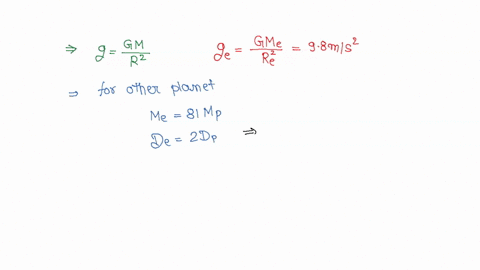 ⇒ g = GM/R² gₑ = GMe/Re² = 9.8m/s²
⇒ for other planet
Me = 81 Mp
De = 2Dp ⇒